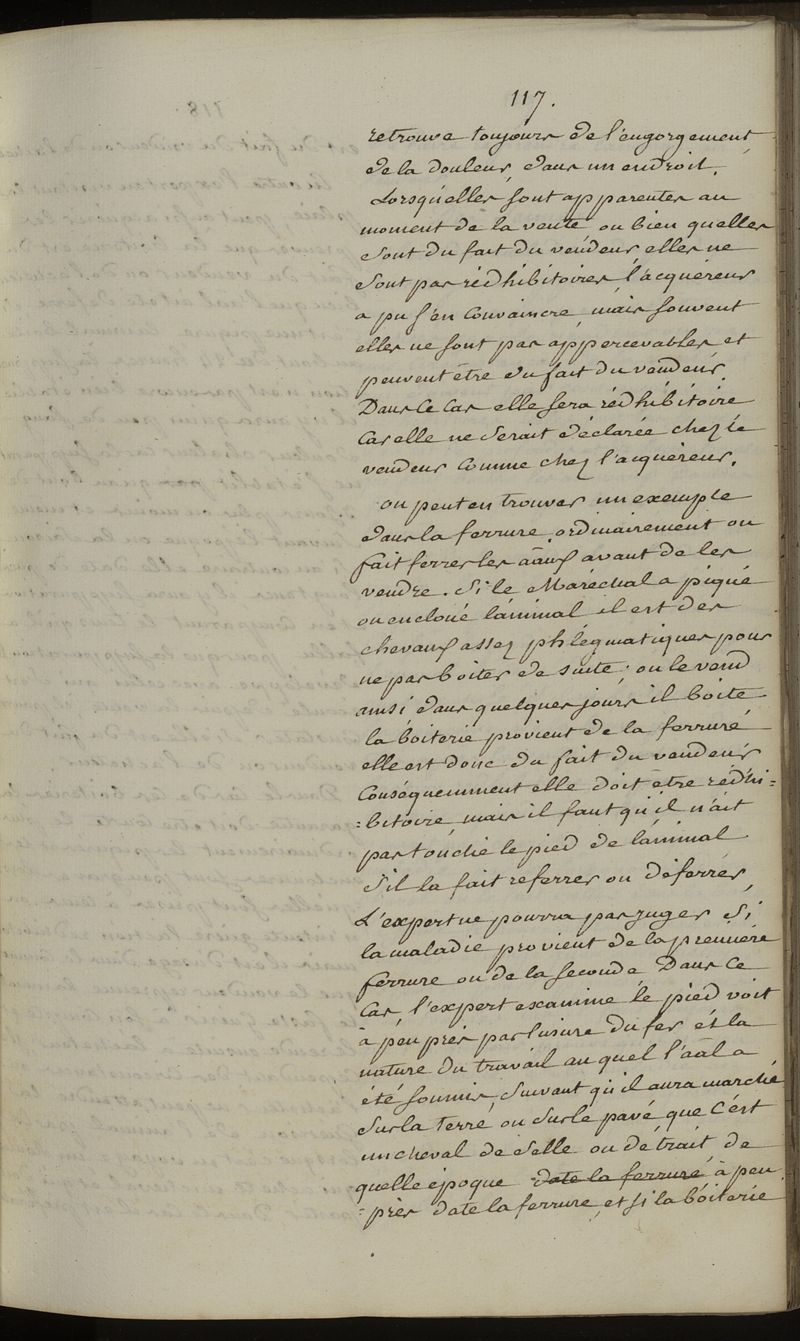 117.
retrouve toujours de l'engorgement
de la douleur, dans un endroit.
Lorsqu'elles sont apparentes au
moment de la vente ou bien quelles
sont du fait du vendeur, elles ne
sont pas rédhibitoires, l'acquéreur
a pu s'en convaincre, mais souvent
elles ne sont pas appercevables et
peuvent être du fait du vendeur.
Dans ce cas elle sera rédhibitoire
car elle ne serait déclarée chez le
vendeur comme chez l'acquéreur.
on peut en trouver un exemple
dans la ferrure, ordinairement on
fait ferrer les aãux avant de les
vendre. Si le Maréchal a piqué
ou encloué l'animal il est des
chevaux assez phlégmatiques pour
ne pas boiter de suite; on le vend
ainsi dans quelques jours il boite
la boiterie provient de la ferrure
elle est donc du fait du vendeur
Conséquemment elle doit etre rédhi=
=bitoire mais il faut qu'il n'ait
pas touché le pied de l'animal
s'il la fait referrer ou déferrer,
L'expert ne pourra pas juger si
la maladie provient de la première
ferrure ou de la seconde. Dans ce
cas, l'expert examine le pied voit
à peu près par l'usure du fer et la
nature du travail au quel l'aãl a
été soumis, suivant qu'il aura marché
sur la terre, ou sur le pavé, que c'est
un cheval de selle ou de trait, de
quelle époque date la ferrure, à peu
=près date la ferrure, et si la boiterie